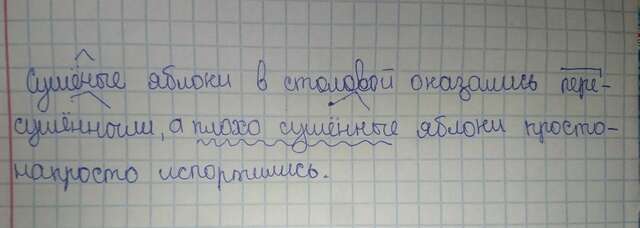 Сушёные яблоки в столовой оказались пере-
сушёнными, а плохо сушённые яблоки просто-
напросто испортились.